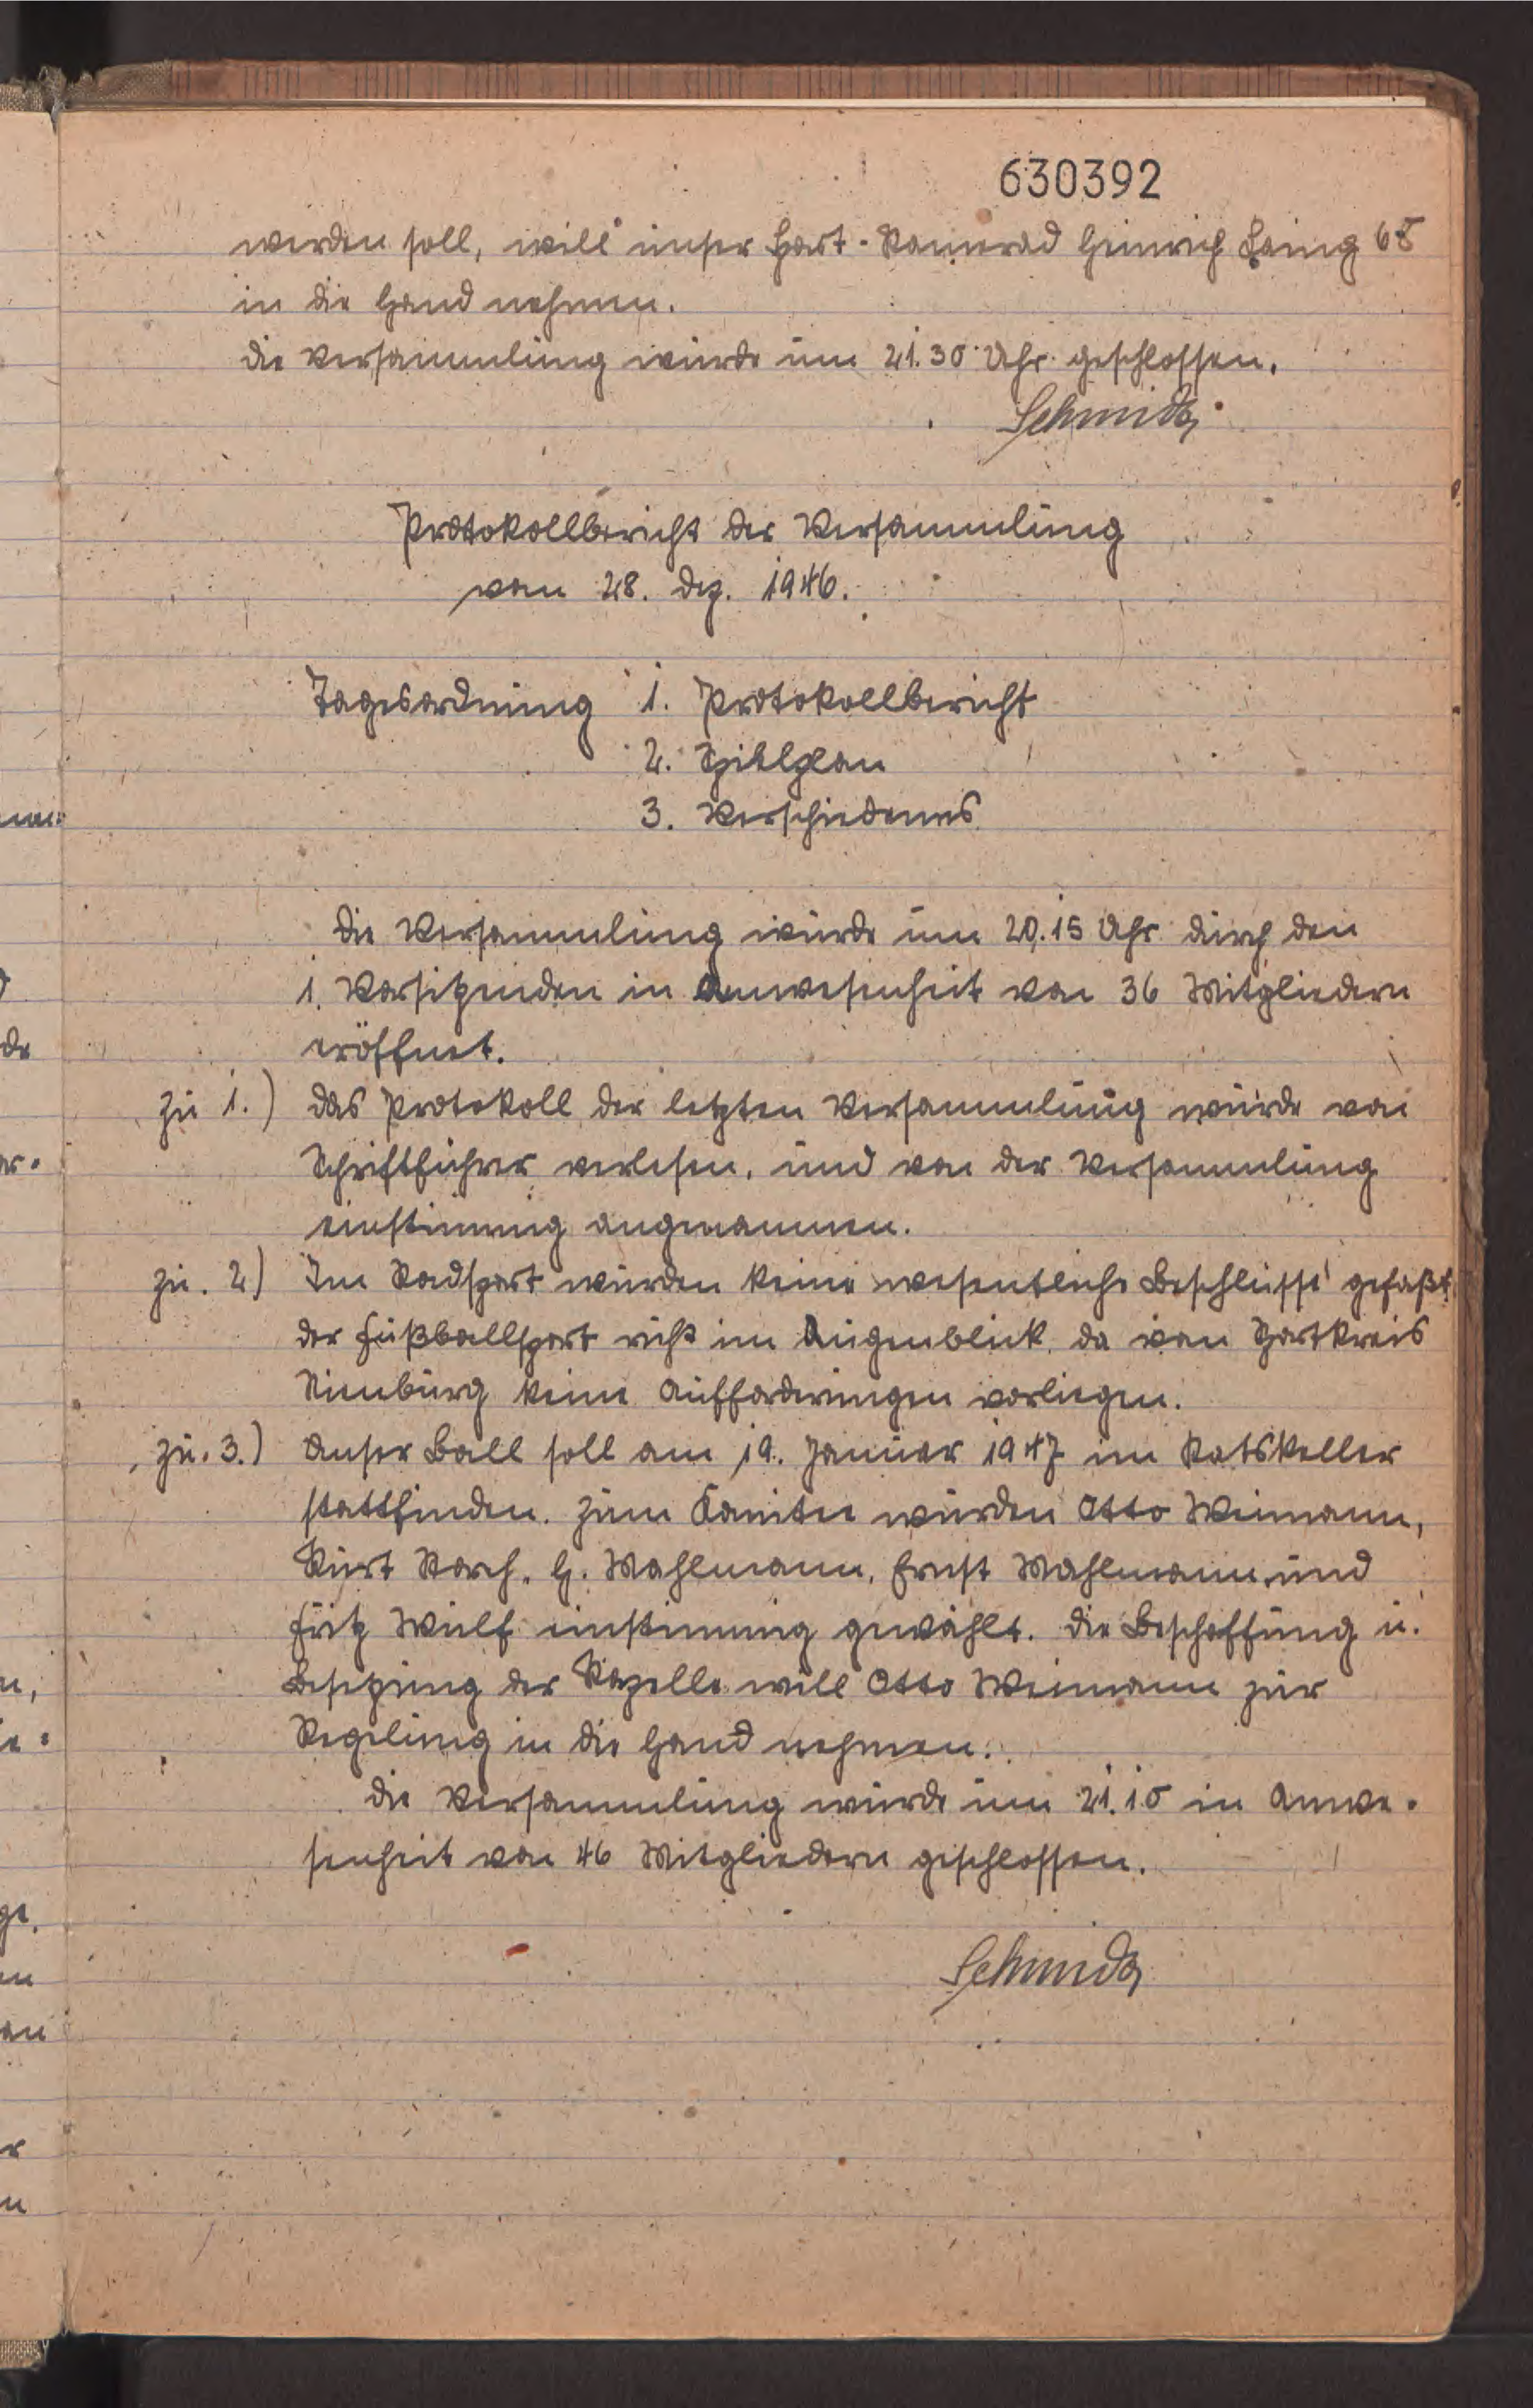 630392
werden soll, will unser Sport-Kamerad Heinrich 65
in die Hand nehmen.
die Versammlung wurde um 21.30 Uhr geschlossen.
Schmidt
Protokollbericht der Versammlung
vom 28. Dez. 1946.
Tagesordnung 1. Protokollbericht
2. Spielplan
3. Verschiedenes
die Versammlung wurde um 20.15 Uhr durch den
1. Vorsitzenden in Anwesenheit von 36 Mitgliedern
eröffnet.
zu 1.) das Protokoll der letzten Versammlung wurde von
Schriftführer verlesen, und von der Versammlung
einstimmig angenommen.
zu. 2) Im Radsport wurden keine wesentliche Beschlüsse gefaßt
der Fußballsport ruht im Augenblick, da vom Sportkreis
Nienburg keine Aufforderungen vorliegen.
zu. 3.) Unser Ball soll am 19. Januar 1947 im Ratskeller
stattfinden. Zum Komitee wurden Otto Weimann,
Kurt Korch, H. Wahlmann, Ernst Wahlmann und
Fritz Wulf einstimmig gewählt. die Beschaffung u.
Besetzung der Kapelle will Otto Weimann zur
Regelung in die Hand nehmen.
die Versammlung wurde um 21.10 in Anwe-
senheit von 46 Mitgliedern geschlossen.
Schmidt